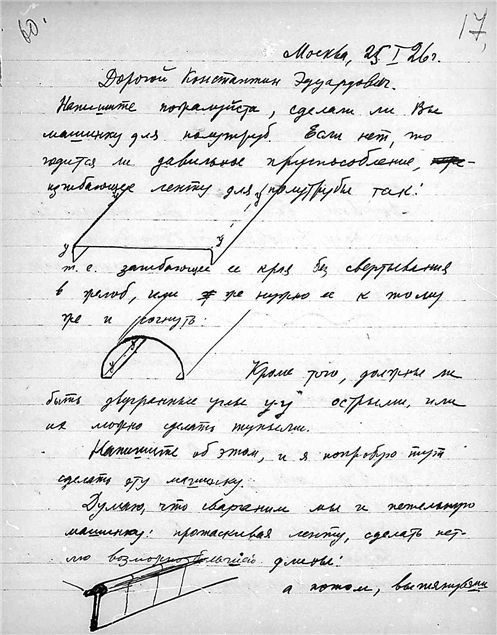 60.
17
Москва, 25 I 26 г.
Дорогой Константин Эдуардович.
Напишите пожалуйста, сделали ли Вы
машинку для полутруб. Если нет, то
годится ли давильное приспособление,
изгибающее ленту для полутрубы так:
у у
т. е. загибающее ее края без свертывания
в желоб, или же нужно ее к тому
же и согнуть:
Кроме того, должны ли
быть двугранные углы у-у острыми, или
их можно сделать тупыми.
Напишите об этом, и я попробую тут
сделать эту машинку.
Думаю, что сварганим мы и петельную
машинку: протаскивая ленту, сделать пет-
лю возможно большей длины:
а потом, вытянув